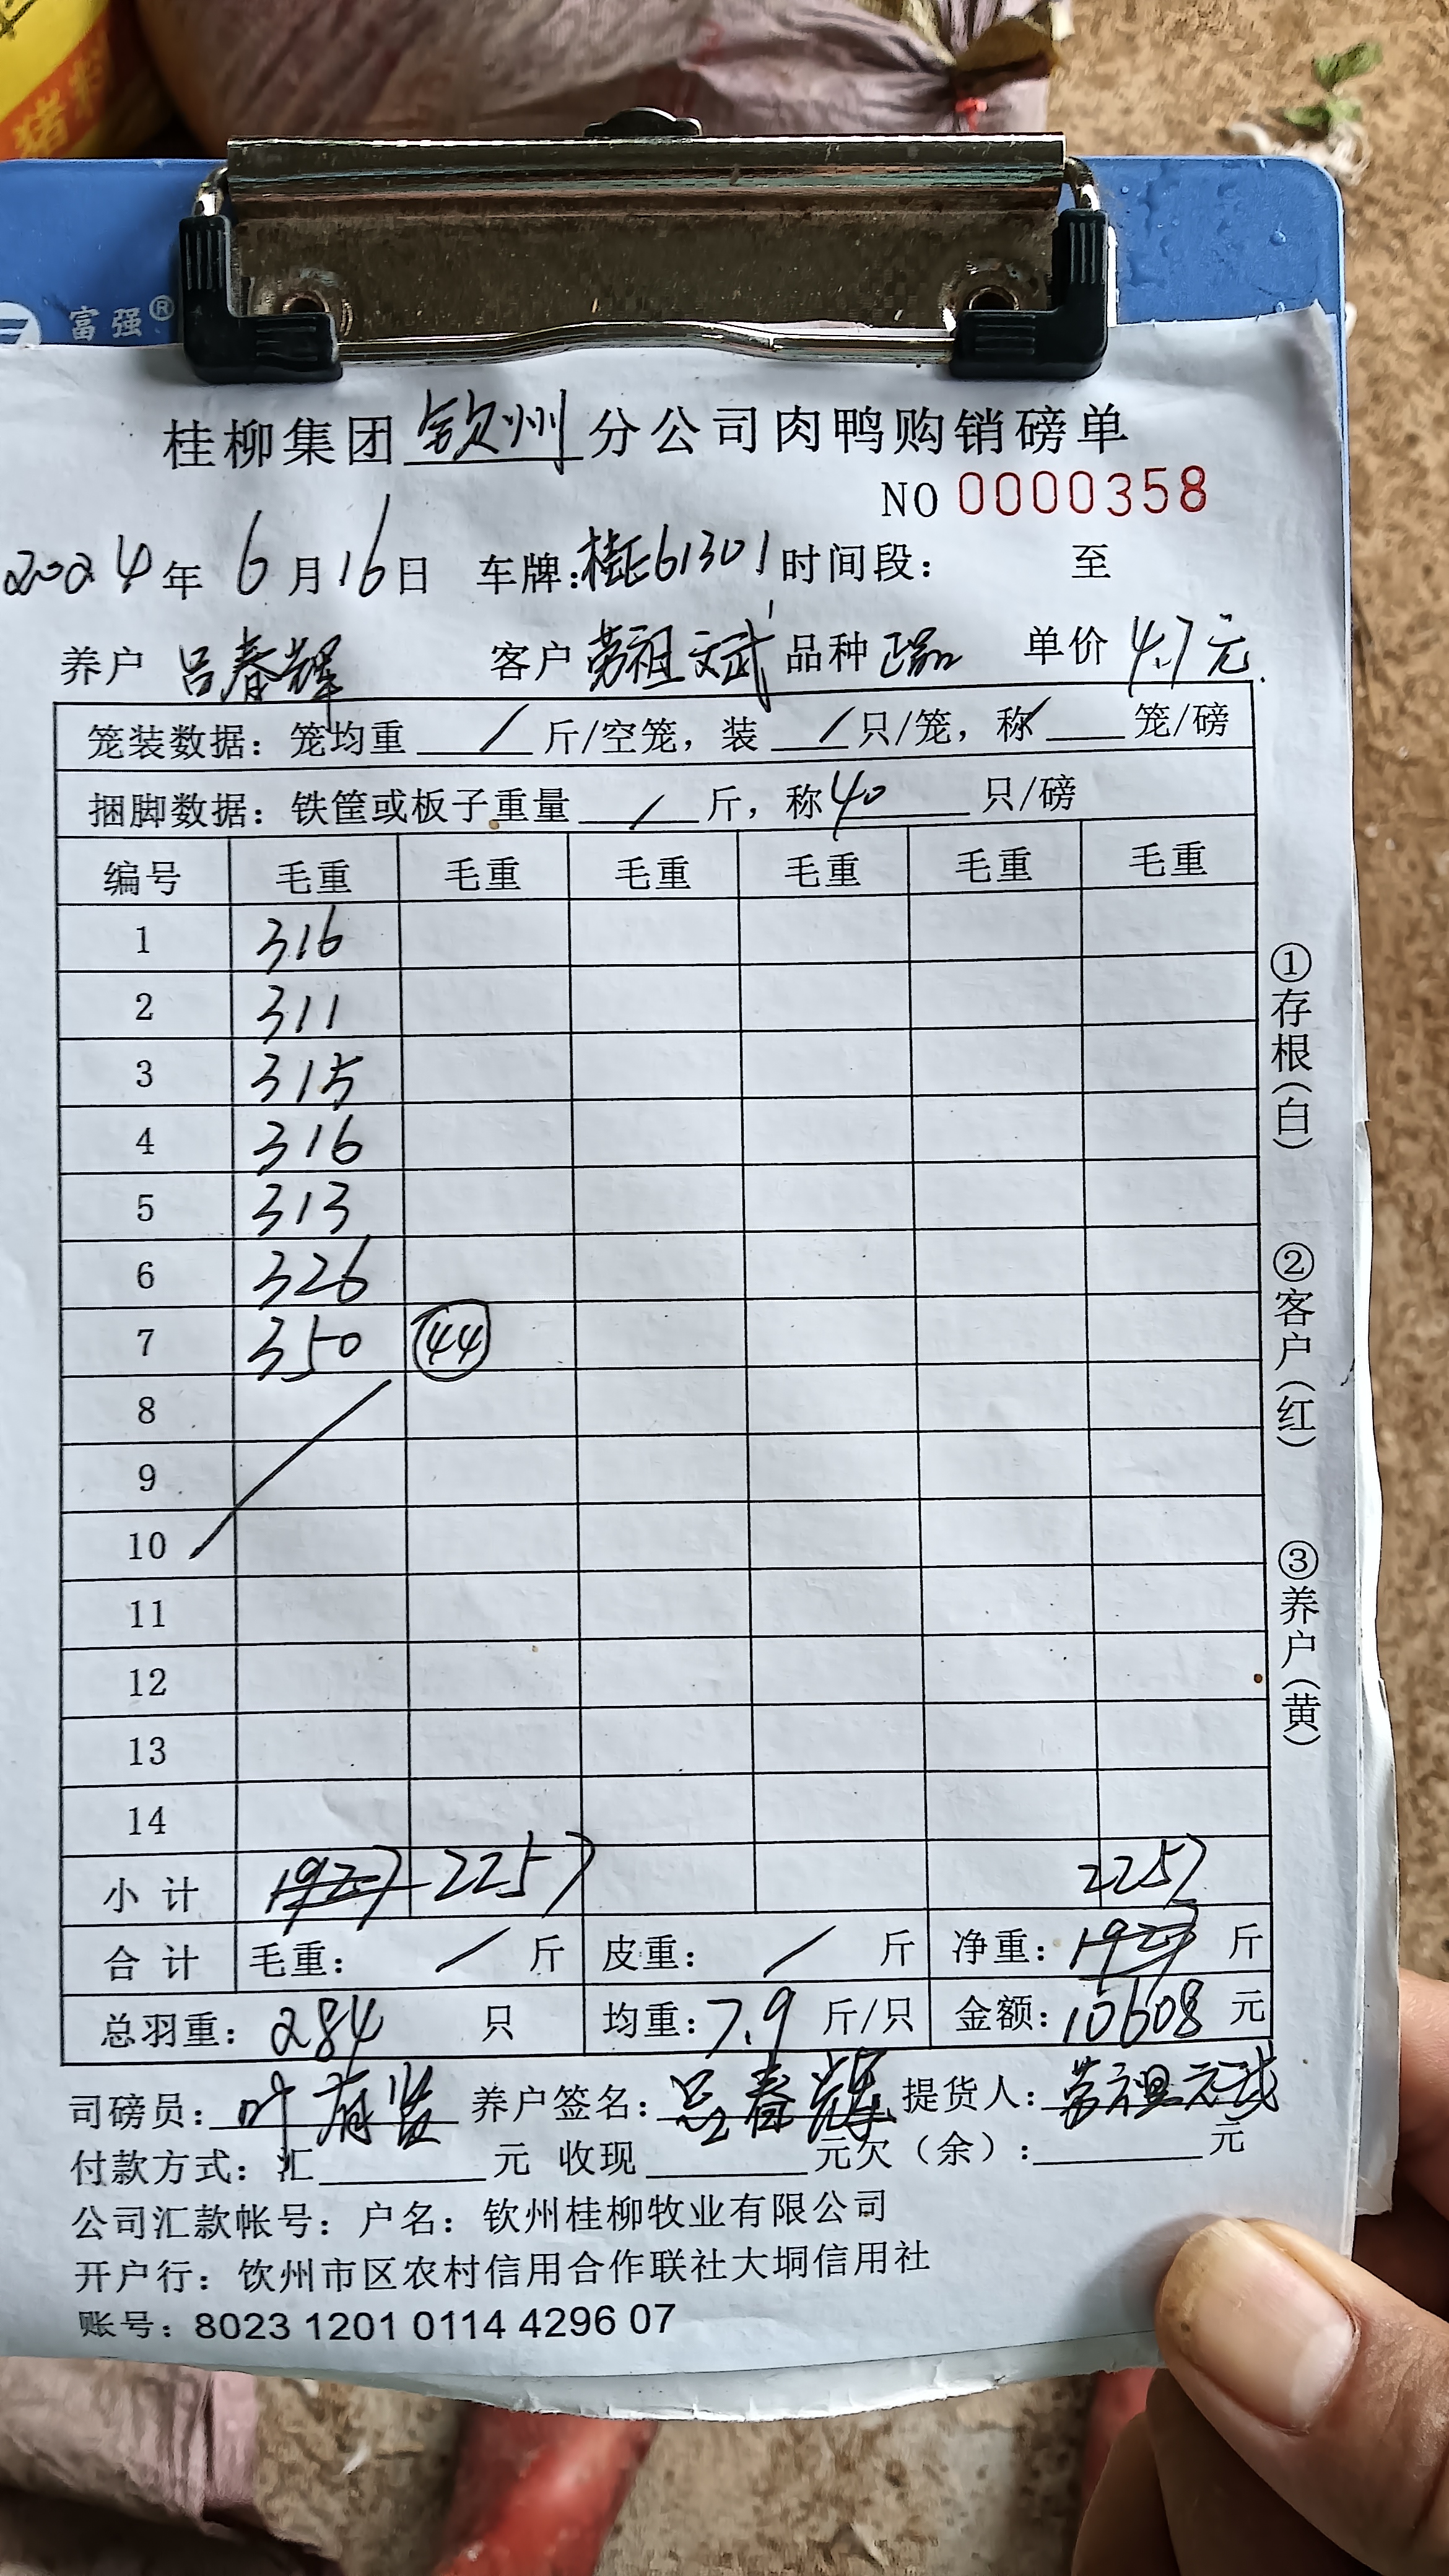 猪料
富强®
桂柳集团 钦州 分公司肉鸭购销磅单
NO 0000358
2024年 6月16日 车牌:桂E61301 时间段: 至
养户 吕春辉 客户 劳祖斌 品种 正品 单价 4.7元.
笼装数据: 笼均重 / 斤/空笼, 装 / 只/笼, 称 / 笼/磅
捆脚数据: 铁筐或板子重量 / 斤, 称40 只/磅
编号 毛重 毛重 毛重 毛重 毛重 毛重
1 316
2 311
3 315
4 316
5 313
6 326
7 350 44
8
9
10
11
12
13
14
小计 1927 2257 2257
合计 毛重: / 斤 皮重: / 斤 净重: 1927 斤
总羽重: 284 只 均重: 7.9 斤/只 金额: 10608 元
司磅员: 叶 养户签名: 吕春辉 提货人: 劳祖斌
付款方式: 汇 元 收现 元欠(余): 元
公司汇款帐号: 户名: 钦州桂柳牧业有限公司
开户行: 钦州市区农村信用合作联社大垌信用社
账号: 8023 1201 0114 4296 07
①存根(白)
②客户(红)
③养户(黄)